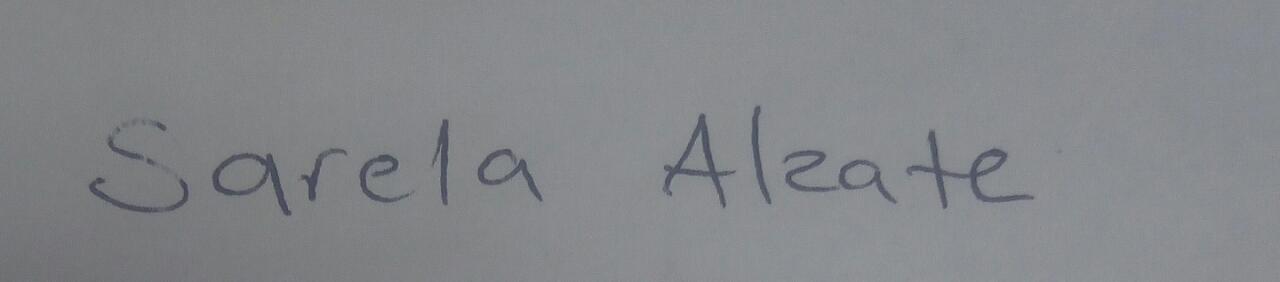 Sarela Alzate